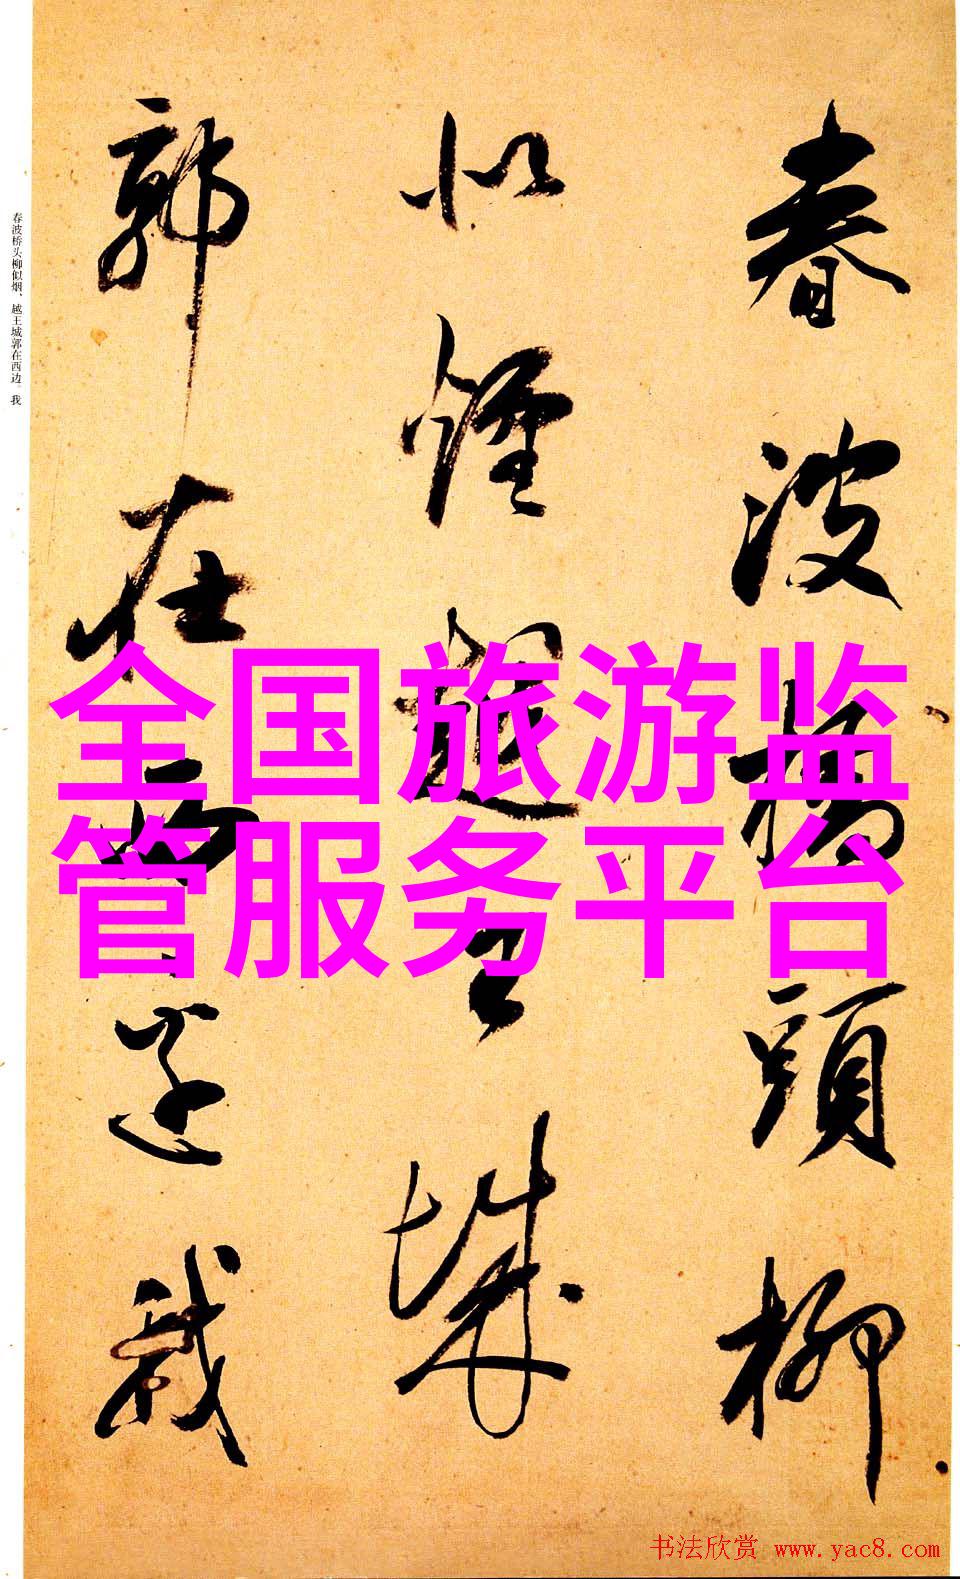 春波橋頭柳
似煙越王城
郭在西邊我
春波桥头柳似烟、越王城郭在西边。我
全国旅游监
管服务平台
书法欣赏 www.yac8.com